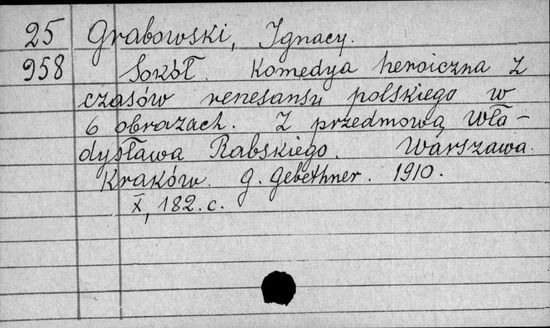 25 Grabowski, Ignacy.
958 Sokół. Komedya heroiczna z
czasów renesansu polskiego w
6 obrazach. Z przedmową Wła-
dysława Rabskiego. Warszawa.
Kraków. G. Gebethner. 1910.
X, 182. c.